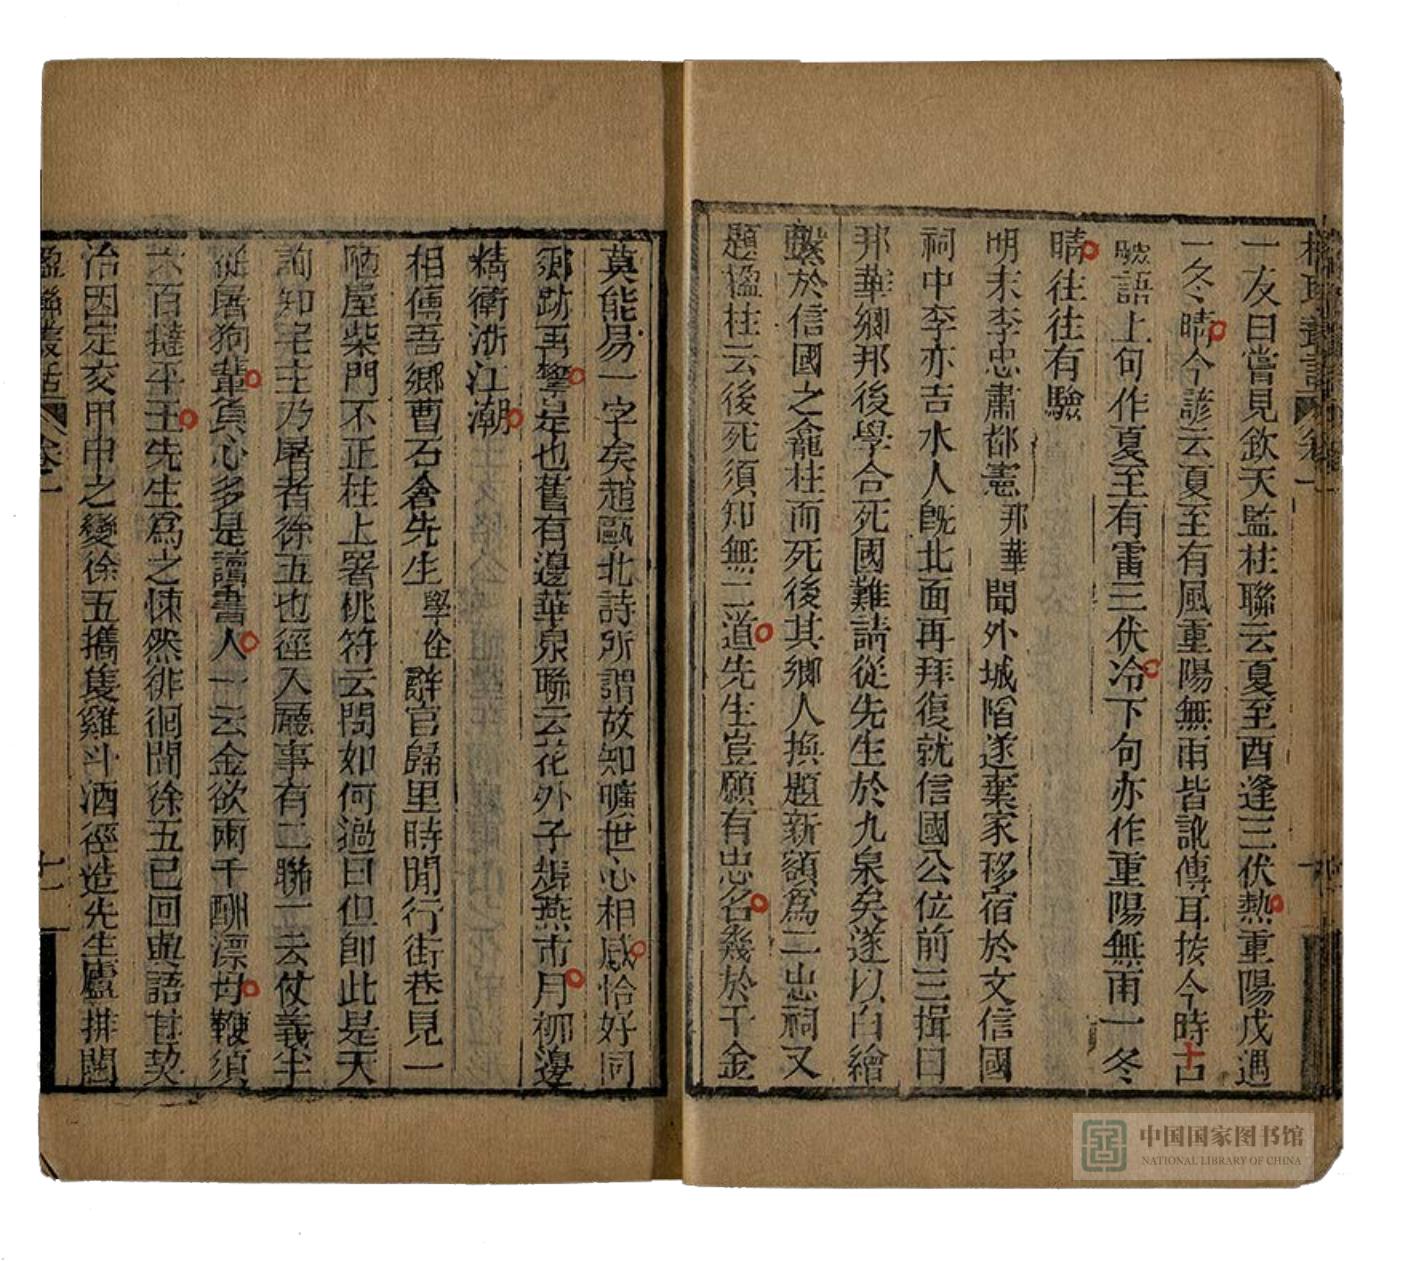 一友曰嘗見欽天監柱聯云夏至酉逢三伏熱重陽戊遇
一冬晴今諺云夏至有風重陽無雨皆訛傳耳按今時古
驗語上句作夏至有雷三伏冷下句亦作重陽無雨一冬
晴往往有驗
明末李忠肅都憲邦華聞外城陷遂棄家移宿於文信國
祠中李亦吉水人旣北面再拜復就信國公位前三揖曰
邦華鄉邦後學合死國難請從先生於九泉矣遂以白繒
繫於信國之龕柱而死後其鄉人撫題新額爲二忠祠又
題楹柱云後死須知無二道先生豈願有忠名幾於千金
莫能易一字矣趙甌北詩所謂故知曠世心相感恰好同
鄉跡再攀是也舊有邊華泉聯云花外子規燕市月柳邊
精衛浙江潮
相傳吾鄉曹石倉先生學佺辭官歸里時閒行街巷見一
陋屋柴門不正柱上署桃符云問如何過日但卽此是天
詢知宅主乃屠者徐五也徑入廳事有二聯一云仗義半
從屠狗輩負心多是讀書人一云金欲兩千酬漂母鞭須
六百撻平王先生爲之悚然徘徊間徐五已回與語甚契
洽因定交甲申之變徐五攜隻雞斗酒徑造先生廬排闥
楹聯叢話 卷一
十一
中国国家图书馆
NATIONAL LIBRARY OF CHINA